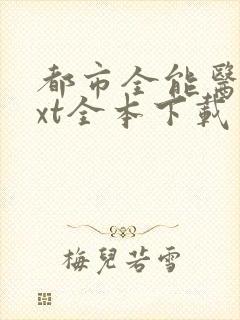 都市全能醫
xt全本下載
梅兒若雪